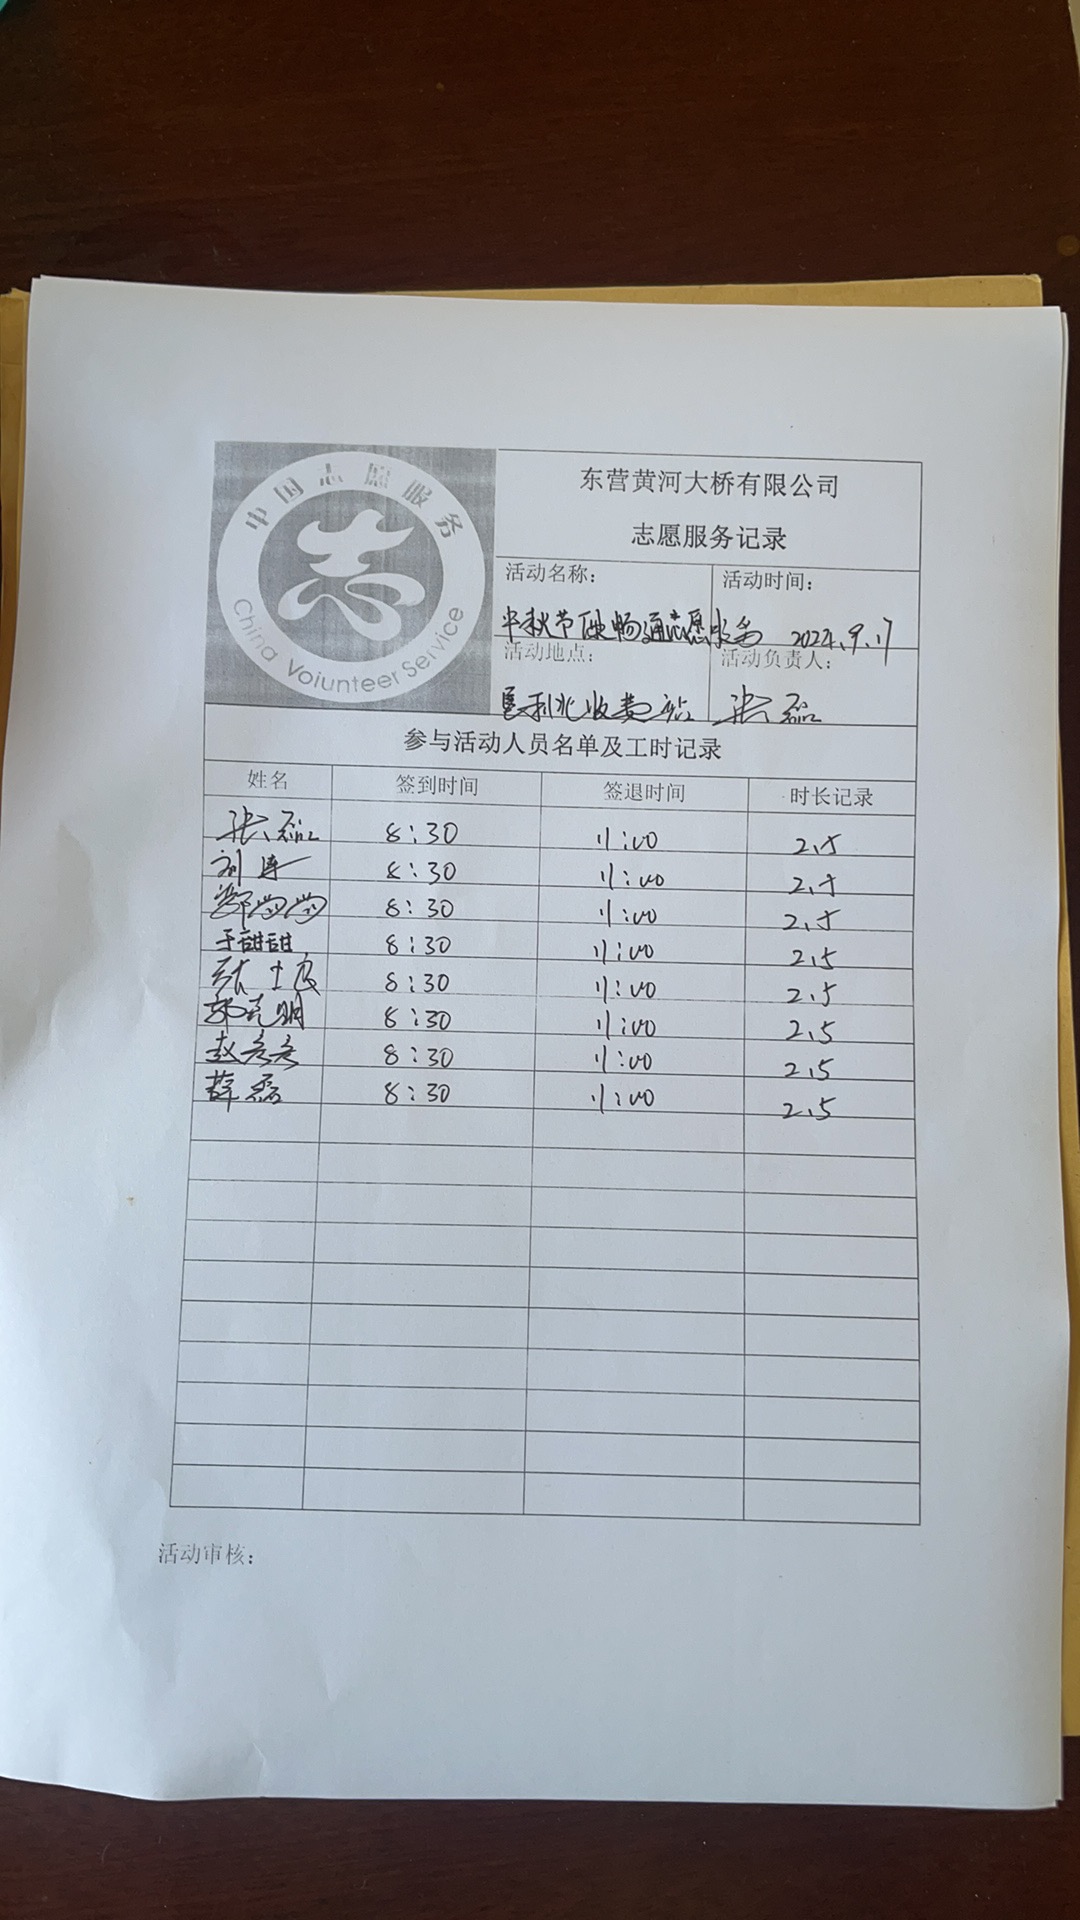 中国志愿服务
China Volunteer Service
东营黄河大桥有限公司
志愿服务记录
活动名称:
活动时间:
中秋节保畅通志愿服务
2024.9.17
活动地点:
活动负责人:
垦利北收费站
张磊
参与活动人员名单及工时记录
姓名 签到时间 签退时间 时长记录
张磊 8:30 11:00 2.5
刘涛 8:30 11:00 2.5
8:30 11:00 2.5
于甜甜 8:30 11:00 2.5
张士良 8:30 11:00 2.5
郭克明 8:30 11:00 2.5
赵彦彦 8:30 11:00 2.5
薛磊 8:30 11:00 2.5
活动审核: